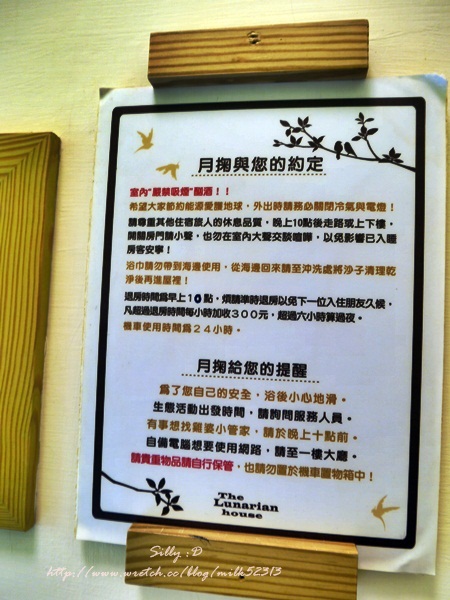 月掬與您的約定
室內"嚴禁吸煙"酗酒!!
希望大家節約能源愛護地球,外出時請務必關閉冷氣與電燈!
請尊重其他住宿旅人的休息品質,晚上10點後走路或上下樓,
開關房門請小聲,也勿在室內大聲交談喧嘩,以免影響已入睡
房客安寧!
浴巾請勿帶到海邊使用,從海邊回來請至沖洗處將沙子清理乾
淨後再進屋裡!
退房時間為早上10點,煩請準時退房以免下一位入住朋友久候。
凡超過退房時間每小時加收300元,超過六小時算過夜。
機車使用時間為24小時。
月掬給您的提醒
為了您自己的安全,浴後小心地滑。
生態活動出發時間,請詢問服務人員。
有事想找雞婆小管家,請於晚上十點前。
自備電腦想要使用網路,請至一樓大廳。
請貴重物品請自行保管,也請勿置於機車置物箱中!
The
Lunarian
house
Silly :D
http://www.wretch.cc/blog/milk52313